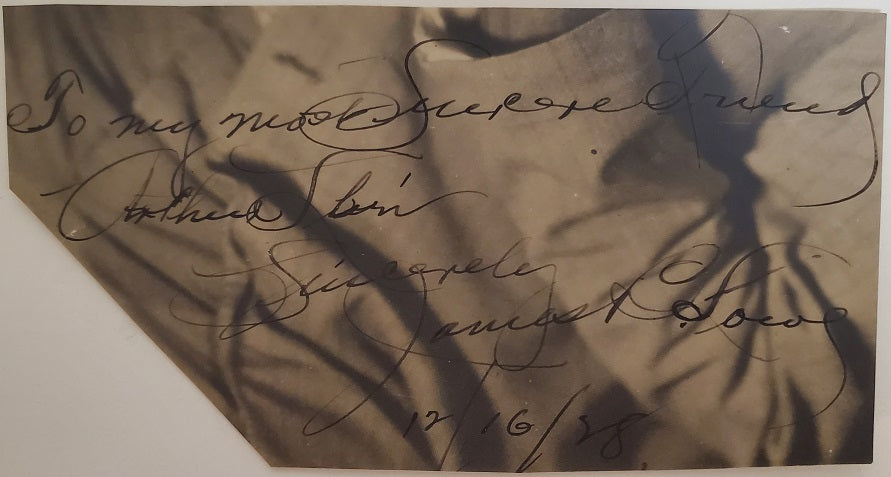 To my most Sincere Friend
Arthur
Sincerely
James B. Lowe
12/16/28